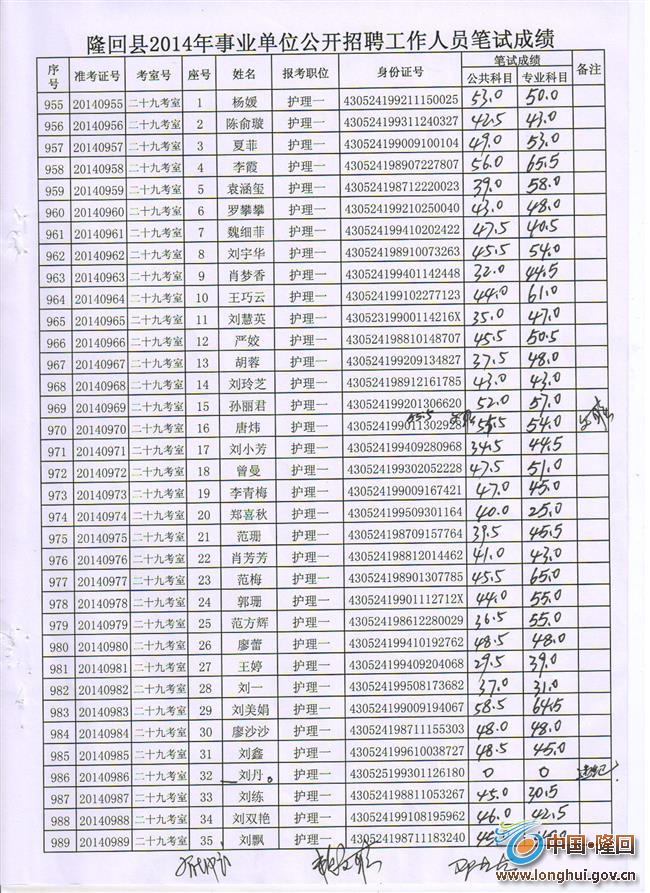 隆回县2014年事业单位公开招聘工作人员笔试成绩
序号 准考证号 考室号 座号 姓名 报考职位 身份证号 笔试成绩 备注
公共科目 专业科目
955 20140955 二十九考室 1 杨媛 护理一 430524199211150025 53.0 50.0
956 20140956 二十九考室 2 陈俞璇 护理一 430524199311240327 42.5 43.0
957 20140957 二十九考室 3 夏菲 护理一 430524199009100104 49.0 53.0
958 20140958 二十九考室 4 李霞 护理一 430524198907227807 56.0 65.5
959 20140959 二十九考室 5 袁涵玺 护理一 430524198712220023 39.0 58.0
960 20140960 二十九考室 6 罗攀攀 护理一 430524199210250040 43.0 48.0
961 20140961 二十九考室 7 魏细菲 护理一 430524199410202422 47.5 40.5
962 20140962 二十九考室 8 刘宇华 护理一 430524198910073263 45.5 54.0
963 20140963 二十九考室 9 肖梦香 护理一 430524199401142448 32.0 44.5
964 20140964 二十九考室 10 王巧云 护理一 430524199102277123 44.0 61.0
965 20140965 二十九考室 11 刘慧英 护理一 43052319900114216X 35.0 47.0
966 20140966 二十九考室 12 严姣 护理一 430524198810148707 45.5 50.5
967 20140967 二十九考室 13 胡蓉 护理一 430524199209134827 37.5 48.0
968 20140968 二十九考室 14 刘玲芝 护理一 430524198912161785 43.0 43.0
969 20140969 二十九考室 15 孙丽君 护理一 430524199201306620 52.0 57.0
970 20140970 二十九考室 16 唐炜 护理一 430524199011302928 55.5 54.0
971 20140971 二十九考室 17 刘小芳 护理一 430524199409280968 34.5 44.5
972 20140972 二十九考室 18 曾曼 护理一 430524199302052228 47.5 51.0
973 20140973 二十九考室 19 李青梅 护理一 430524199009167421 47.0 45.0
974 20140974 二十九考室 20 郑喜秋 护理一 430524199509301164 40.0 25.0
975 20140975 二十九考室 21 范珊 护理一 430524198709157764 39.5 45.5
976 20140976 二十九考室 22 肖芳芳 护理一 430524198812014462 41.0 43.0
977 20140977 二十九考室 23 范梅 护理一 430524198901307785 45.5 65.0
978 20140978 二十九考室 24 郭珊 护理一 43052419901112712X 44.0 55.0
979 20140979 二十九考室 25 范方辉 护理一 430524198612280029 36.5 55.0
980 20140980 二十九考室 26 廖蕾 护理一 430524199410192762 48.5 48.0
981 20140981 二十九考室 27 王婷 护理一 430524199409204068 29.5 39.0
982 20140982 二十九考室 28 刘一 护理一 430524199508173682 37.0 31.0
983 20140983 二十九考室 29 刘美娟 护理一 430524199009194067 58.5 64.5
984 20140984 二十九考室 30 廖沙沙 护理一 430524198711155303 48.0 48.0
985 20140985 二十九考室 31 刘鑫 护理一 430524199610038727 48.5 45.0
986 20140986 二十九考室 32 刘丹 护理一 430525199301126180 0 0 违纪
987 20140987 二十九考室 33 刘练 护理一 430524198811053267 45.0 30.5
988 20140988 二十九考室 34 刘双艳 护理一 430524199108195962 46.0 42.5
989 20140989 二十九考室 35 刘飘 护理一 430524198711183240
中国·隆回
www.longhui.gov.cn